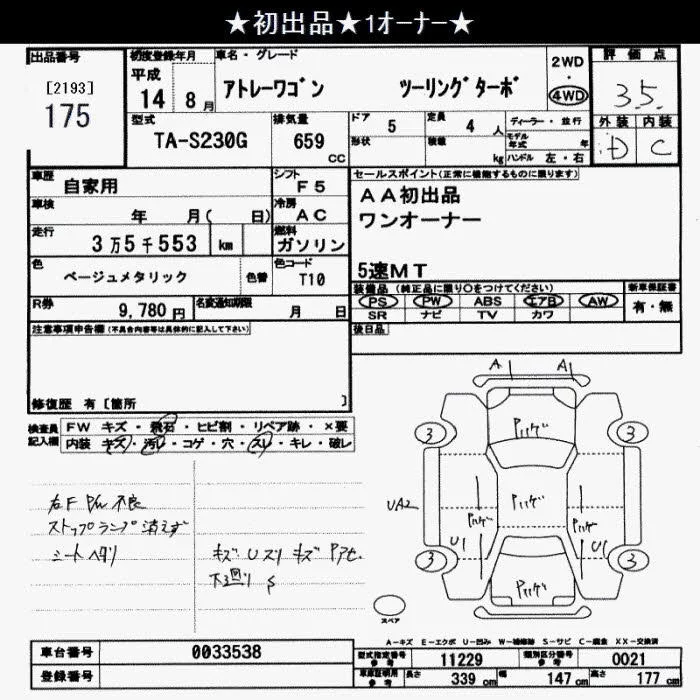 ★初出品★1ｵｰﾅｰ★
出品番号
[2193]
175
初度登録年月
平成
14 8月
車名・グレード
アトレーワゴン ツーリングターボ
2WD
・
4WD
評価点
3.5
外装 内装
D C
型式
TA-S230G
排気量
659
CC
ドア
5
定員
4 人
形状
積載
kg
ディーラー・並行
モデル年式 年
ハンドル 左・右
車歴
自家用
シフト
F5
車検
年 月( 日)
冷房
AC
走行
3万5千553 km
燃料
ガソリン
色
ベージュメタリック
色替
色コード
T10
R券
9,780円
名変通知期限
月 日
セールスポイント(正常に機能するものに限ります)
AA初出品
ワンオーナー
5速MT
装備品 (純正品に限り○をつけてください)
PS PW ABS エアB AW
SR ナビ TV カワ
新車保証書
有・無
後日品
注意事項申告欄(不具合内容等は具体的に記入して下さい)
修復歴 有 [箇所 ]
検査員記入欄
FW キズ・飛石・ヒビ割・リペア跡・×要
内装 キズ・汚レ・コゲ・穴・スレ・キレ・破レ
右F P/W 不良
ストップランプ 消えず
シートヘタリ
キズ Uスリ キズ Pアセ.
下廻り S
A A
3 3
Pハゲ
UA2
Pハゲ
Pハゲ
Pハゲ
U1 U1
3 3
Pハゲ
スペア
A-キズ E-エクボ U-凹み W-補修跡 S-サビ C-腐食 XX-交換済
車台番号
0033538
登録番号
型式指定番号
参考
11229
類別区分番号
参考
0021
車庫証明用
参考
長さ 339cm
幅 147cm
高さ 177cm